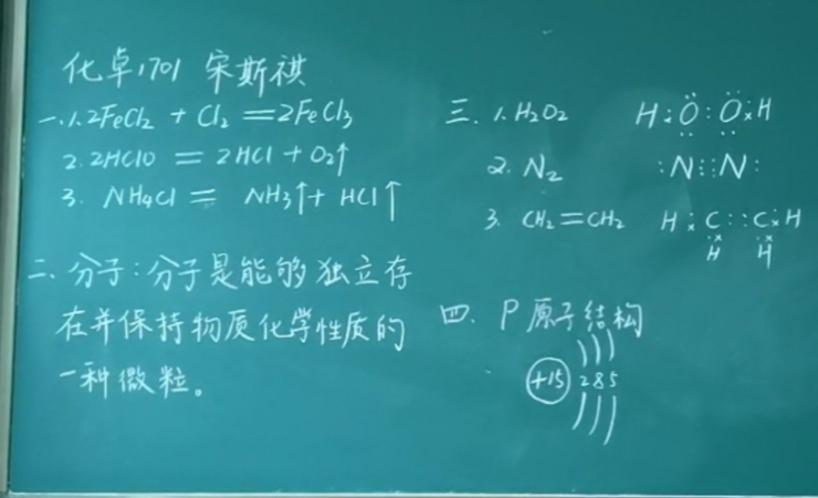 化卓1701 宋斯祺
一.1.2FeCl2 + Cl2 =2FeCl3
2.2HClO = 2HCl + O2↑
3. NH4Cl = NH3↑+ HCl↑
二.分子:分子是能够独立存
在并保持物质化学性质的
一种微粒。
三. 1.H2O2 H:O:O:H
2.N2 :N:::N:
3. CH2=CH2 H:C::C:H
H H
四. P原子结构
+15 2 8 5